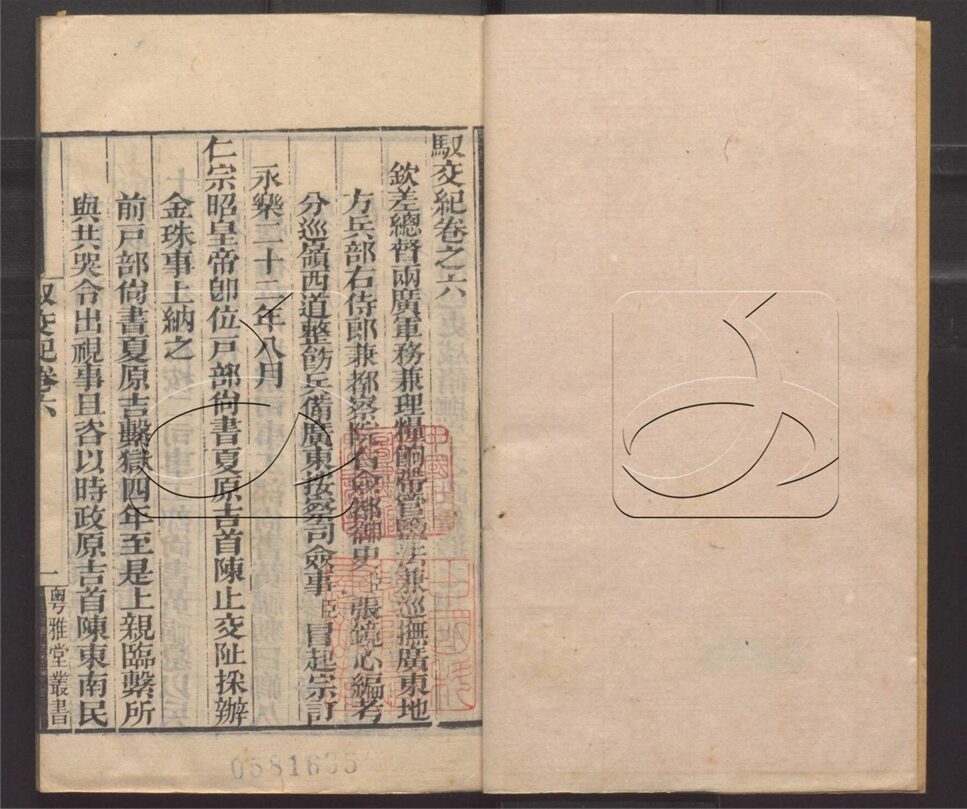 馭交紀卷之六
欽差總督兩廣軍務兼理糧餉帶管鹽法兼巡撫廣東地
方兵部右侍郎兼都察院右僉都御史臣張鏡心編考
分巡嶺西道整飭兵備廣東按察司僉事臣冒起宗訂
永樂二十二年八月
仁宗昭皇帝卽位戸部尙書夏原吉首陳止交阯採辦
金珠事上納之
前戸部尙書夏原吉繫獄四年至是上親臨繫所
與共哭令出視事且咨以時政原吉首陳東南民
馭交紀卷六
一
粤雅堂叢書
0581635